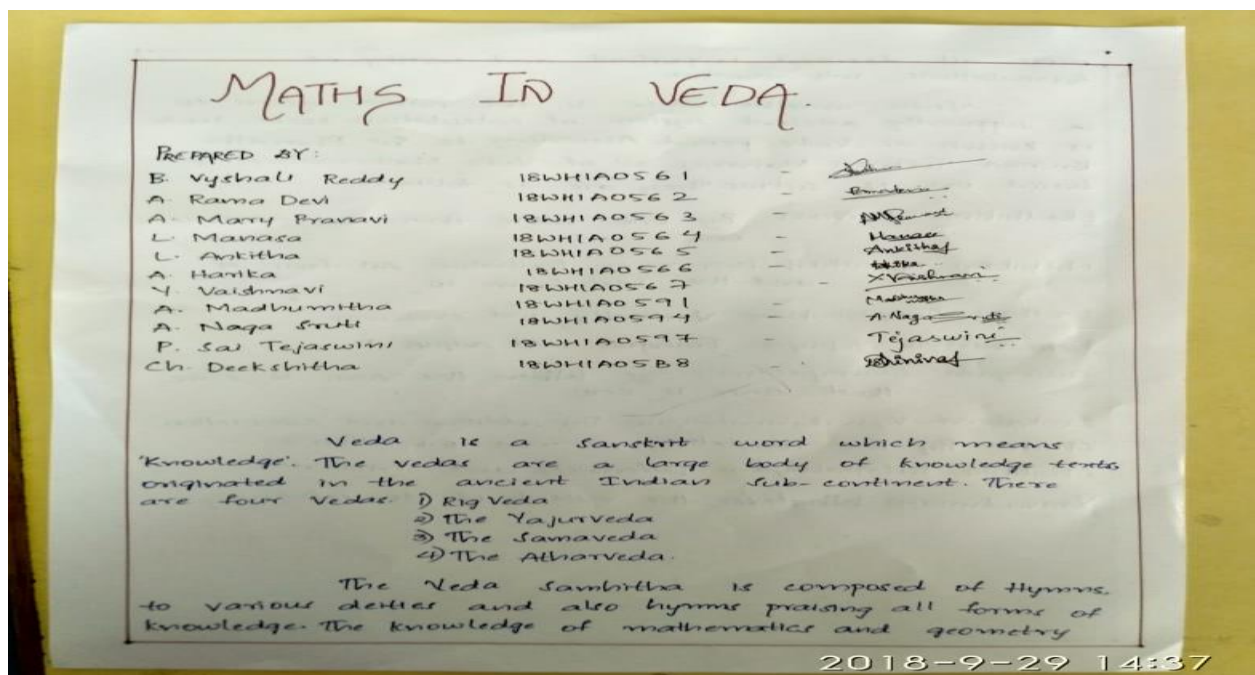 MATHS IN VEDA.
PREPARED BY:
B. Vyshali Reddy 18WH1A0561 -
A. Rama Devi 18WH1A0562 -
A. Marry Pranavi 18WH1A0563 -
L. Manasa 18WH1A0564 - Manasa
L. Ankitha 18WH1A0565 - Ankitha
A. Harika 18WH1A0566 -
Y. Vaishnavi 18WH1A0567 - Y Vaishnavi
A. Madhumitha 18WH1A0591 -
A. Naga Sruti 18WH1A0594 - A. Naga Sruti
P. Sai Tejaswini 18WH1A0597 - Tejaswini
Ch. Deekshitha 18WH1A05B8 -
Veda is a Sanskrit word which means
'Knowledge'. The vedas are a large body of knowledge texts
originated in the ancient Indian Sub-continent. There
are four Vedas. 1) Rig Veda
2) The Yajurveda
3) The Samaveda
4) The Atharveda.
The Veda Sambitha is composed of Hymns.
to various deities and also hymns praising all forms of
knowledge. The knowledge of mathematics and geometry
2018-9-29 14:37